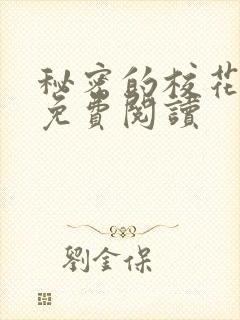 秘密的校花
免費閱讀
劉金保